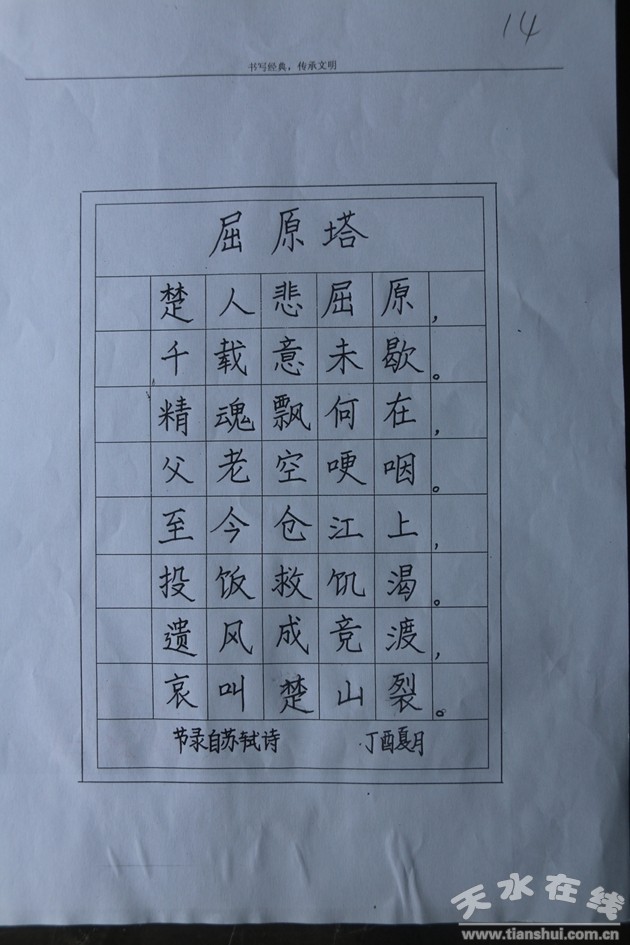 14
书写经典，传承文明
屈原塔
楚人悲屈原，
千载意未歇。
精魂飘何在，
父老空哽咽。
至今仓江上，
投饭救饥渴。
遗风成竞渡，
哀叫楚山裂。
节录自苏轼诗 丁酉夏月
天水在线
www.tianshui.com.cn